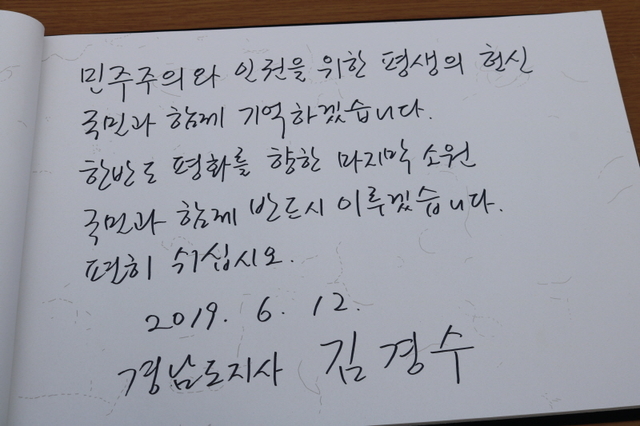 민주주의와 인권을 위한 평생의 헌신
국민과 함께 기억하겠습니다.
한반도 평화를 향한 마지막 소원
국민과 함께 반드시 이루겠습니다.
편히 쉬십시오.
2019. 6. 12.
경남도지사 김경수